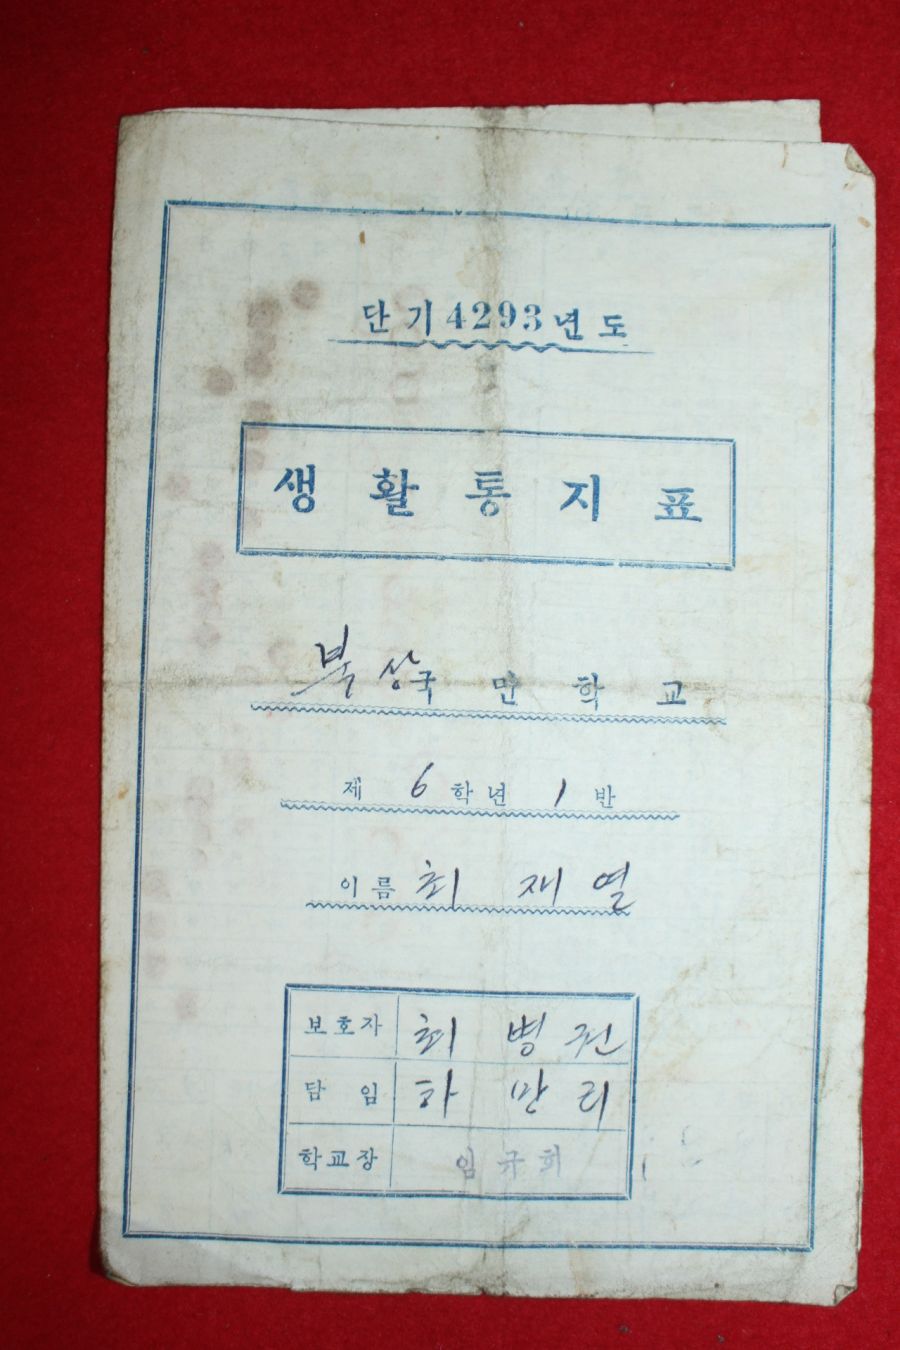 단기4293년도
생활통지표
북상국민학교
제 6 학년 1 반
이름 최 재 열
보호자 최 병 권
담 임 하 만 리
학교장 임 규 희